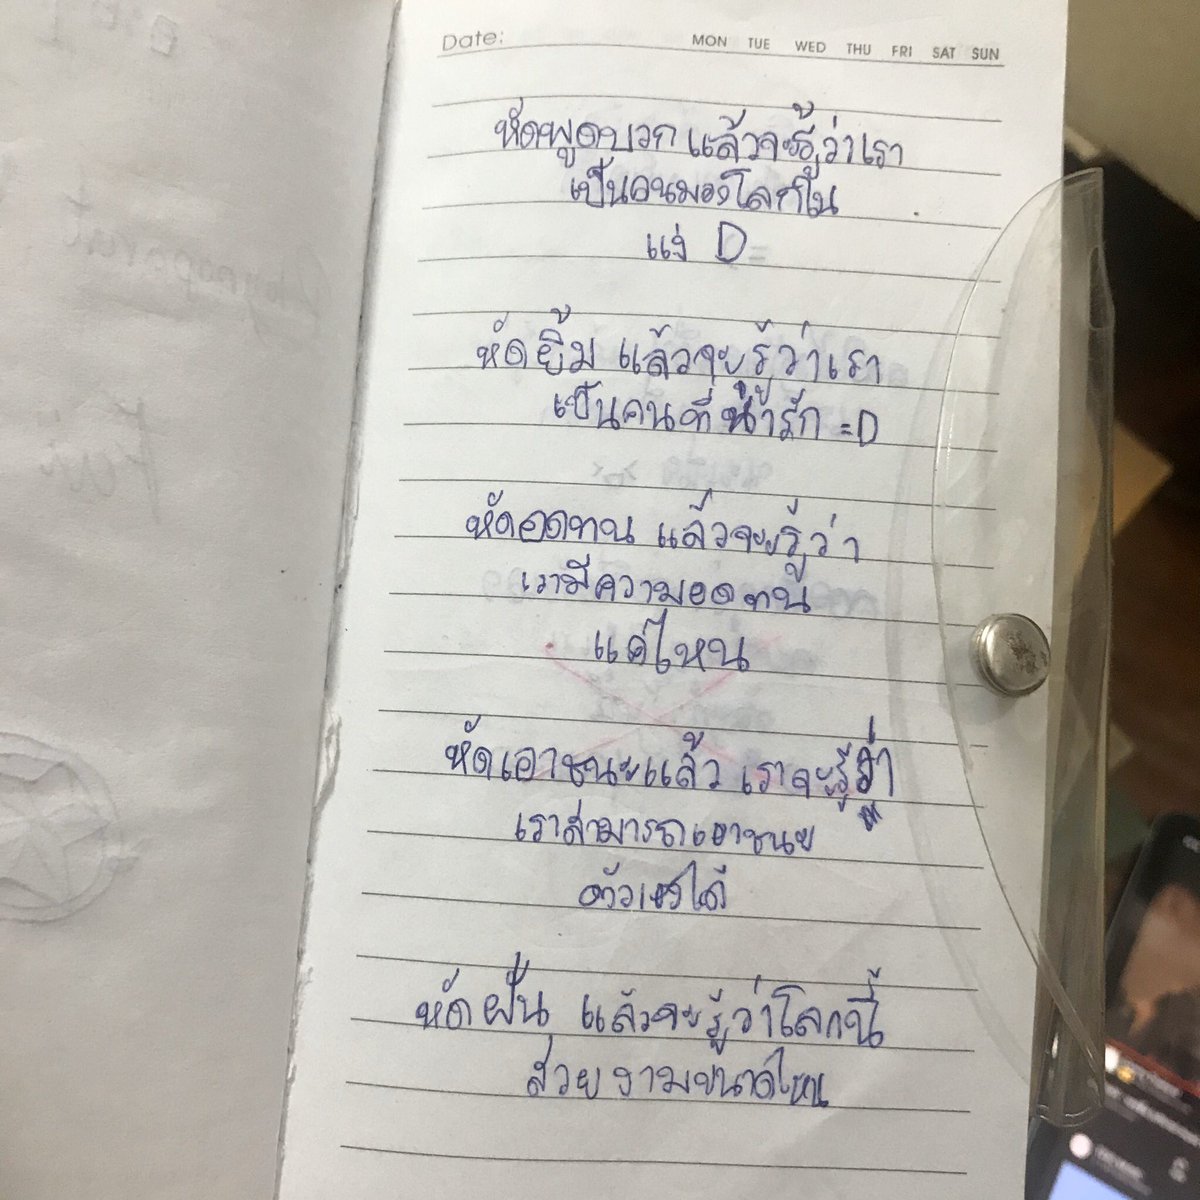 Date: MON TUE WED THU FRI SAT SUN
หัดพูดบวก แล้วจะรู้ว่าเรา
เป็นคนมองโลกใน
แง่ D
หัดยิ้ม แล้วจะรู้ว่าเรา
เป็นคนที่น่ารัก =D
หัดอดทน แล้วจะรู้ว่า
เรามีความอดทน
แค่ไหน
หัดเอาชนะแล้ว เราจะรู้ว่า
เราสามารถเอาชนะ
ตัวเองได้
หัดฝัน แล้วจะรู้ว่าโลกนี้
สวยงามขนาดไหน